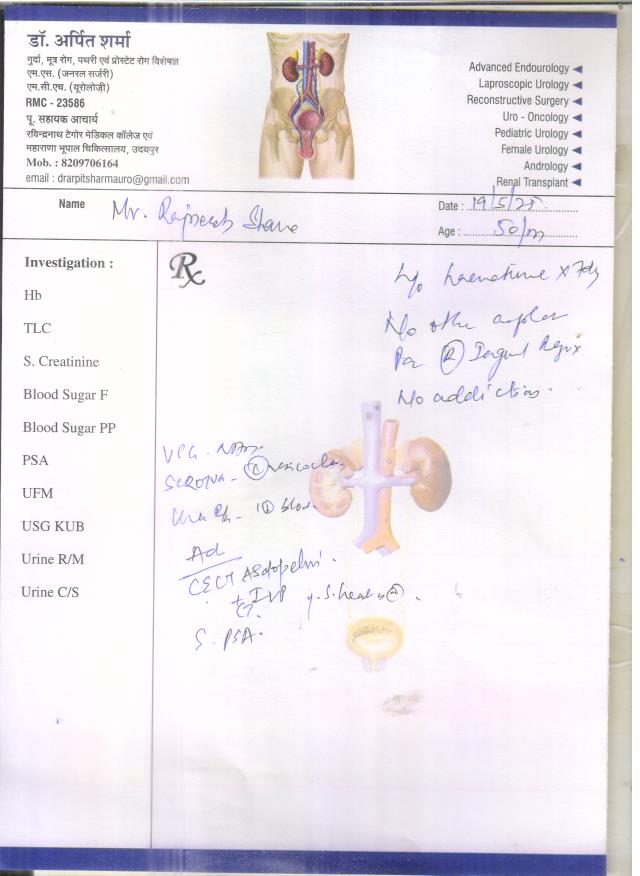 डॉ. अर्पित शर्मा
गुर्दा, मूत्र रोग, पथरी एवं प्रोस्टेट रोग विशेषज्ञ
एम.एस. (जनरल सर्जरी)
एम.सी.एच. (यूरोलोजी)
RMC - 23586
पू. सहायक आचार्य
रविन्द्रनाथ टैगोर मेडिकल कॉलेज एवं
महाराणा भूपाल चिकित्सालय, उदयपुर
Mob. : 8209706164
email : drarpitsharmauro@gmail.com
Advanced Endourology
Laproscopic Urology
Reconstructive Surgery
Uro - Oncology
Pediatric Urology
Female Urology
Andrology
Renal Transplant
Name Mr.
Date : 19/5/25
Age : 50/m
Investigation :
Hb
TLC
S. Creatinine
Blood Sugar F
Blood Sugar PP
PSA
UFM
USG KUB
Urine R/M
Urine C/S
Rx
H/o x
No other
(R)
No addiction.
Ad
CECT
+ IVP
S. PSA.